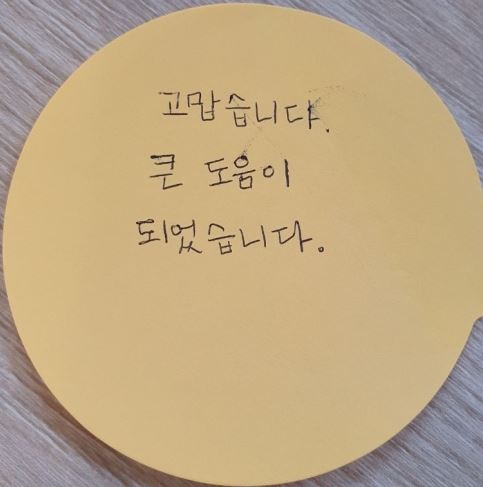 고맙습니다.
큰 도움이
되었습니다.